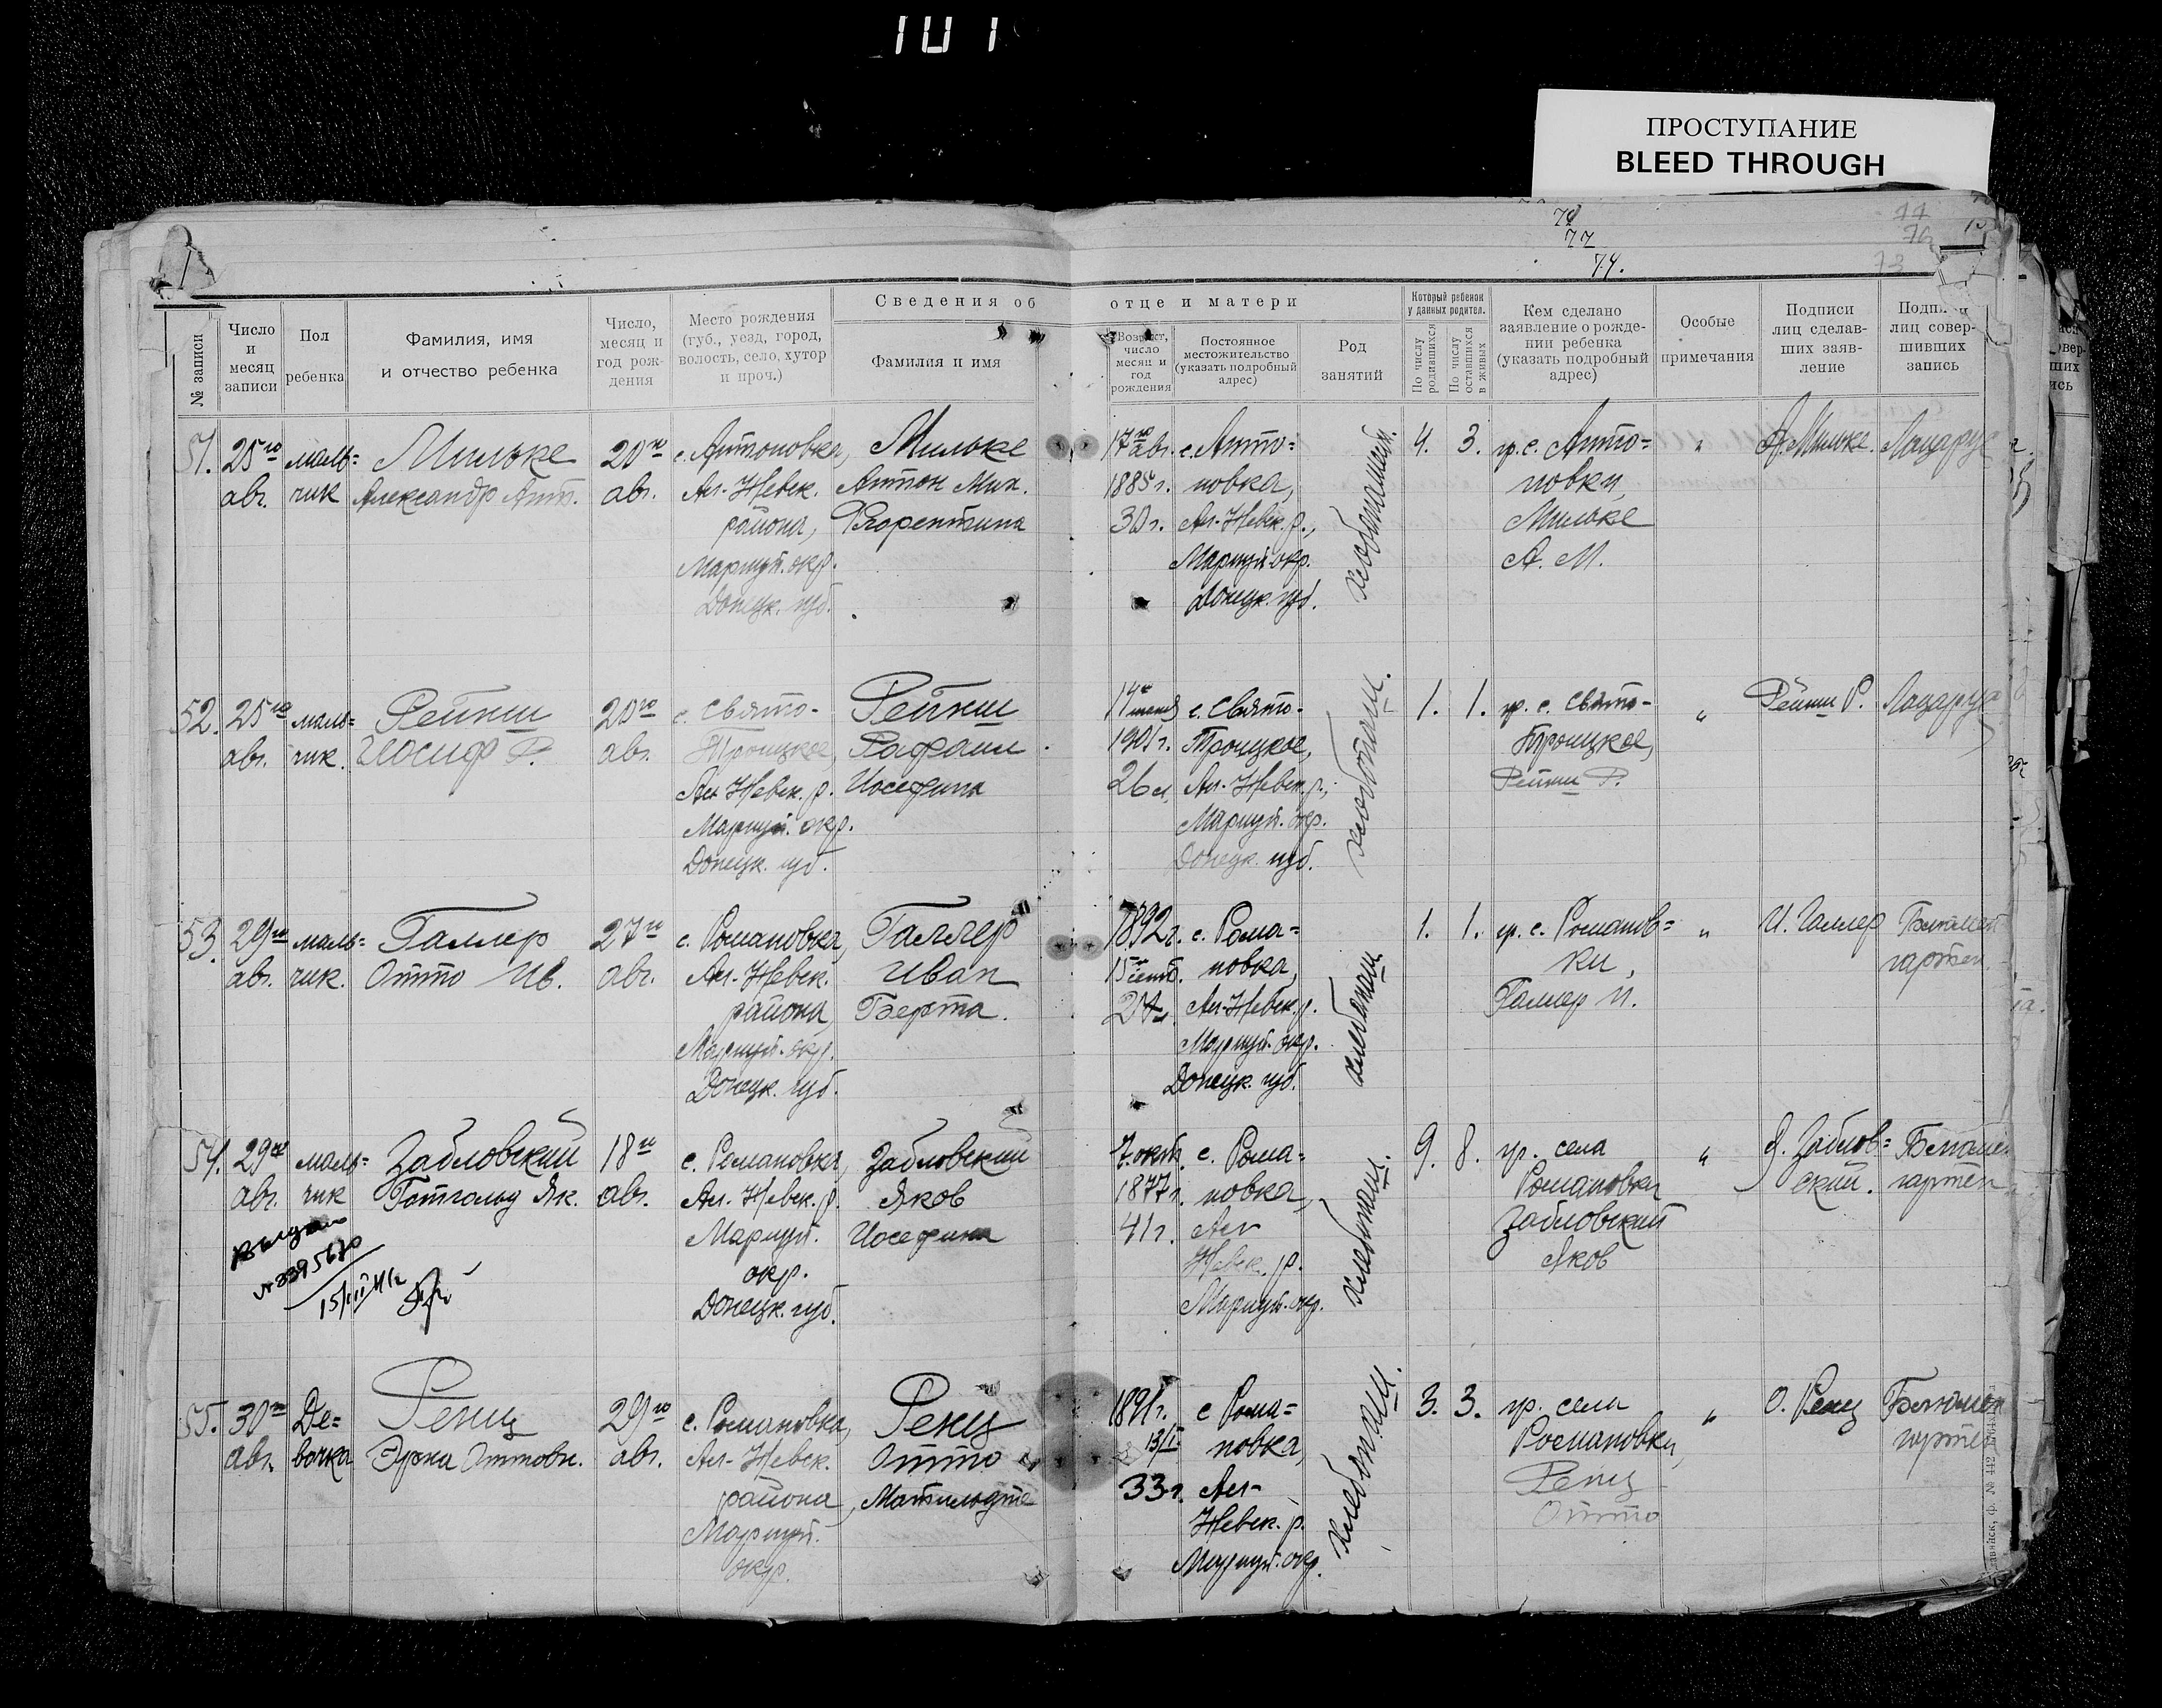 101
ПРОСТУПАНИЕ
BLEED THROUGH
77
74.
77
76
73
№ записи
Число и месяц записи
Пол ребенка
Фамилия, имя и отчество ребенка
Число, месяц и год рождения
Место рождения (губ., уезд, город, волость, село, хутор и проч.)
Сведения об отце и матери
Фамилия и имя
Возраст, число месяц и год рождения
Постоянное местожительство (указать подробный адрес)
Род занятий
Который ребенок у данных родител.
По числу родившихся
По числу оставшихся в живых
Кем сделано заявление о рождении ребенка (указать подробный адрес)
Особые примечания
Подписи лиц сделавших заявление
лиц совершивших запись
51. 25го авг. маль=чик
Мильке
Александр Ант.
20го авг.
с. Антоновка,
Ал-Невск.
района,
Мариуп. окр.
Донецк. губ.
Мильке
Антон Мих.
Флорентина
17го авг.
1885 г.
30 г.
с. Анто=
новка,
Ал-Невск. р.,
Мариуп. окр.
Донецк. губ.
хлебопашец.
4. 3.
гр. с. Анто=
новки,
Мильке
А. М.
"
А. Мильке.
Лазарук
52. 25го авг. маль=чик.
Рейниш
Иосиф Р.
20го авг.
с. Свято-
Троицкое,
Ал Невск. р.
Мариуп. окр.
Донецк. губ.
Рейниш
Рафаил
Иосефина
1901 г.
с. Свято-
Троицкое,
Ал-Невск. р.,
Мариуп. окр.
Донецк. губ.
хлебопаш.
1. 1.
гр. с. Свято-
Троицкое,
"
Лазарук
53. 29го авг. маль=чик.
Галлер
Отто Ив.
27го авг.
с. Романовка,
Ал-Невск.
района,
Мариуп. окр.
Донецк. губ.
Галлер
Иван
Берта.
1892 г.
15го сент.
с. Рома=
новка,
Ал-Невск. р.
Мариуп. окр.
Донецк. губ.
хлебопаш
1. 1.
гр. с. Романов=
ки,
Галлер И.
"
И. Галлер
54. 29го авг. маль=чик
Забловский
Готгольд Як.
18го авг.
с. Романовка,
Ал. Невск. р.
Мариуп.
окр.
Донецк. губ.
Забловский
Яков
Иосефина
7. окт.
1877 г.
41 г.
с. Рома=
новка,
Ал
Невск. р.
Мариуп. окр.
хлебопаш.
9. 8.
гр. села
Романовки
Забловский
Яков
"
Я. Заблов=
ский.
55. 30го авг. Де=вочка
Ренц
Эрна Оттовн.
29го авг.
с. Романовка,
Ал-Невск.
района,
Мариуп.
окр.
Ренц
Отто
Матильде
1891 г.
13/I
33 г.
с Рома=
новка,
Ал-
Невск. р.
Мариуп. окр.
хлебопаш.
3. 3.
гр. села
Романовки,
Ренц
Отто
"
О. Ренц